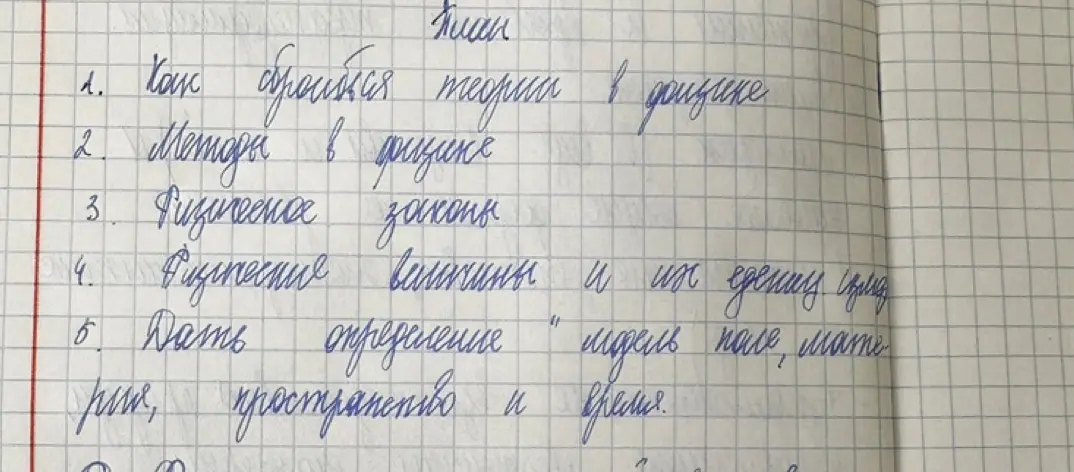 План
1. Как строятся теории в физике
2. Методы в физике
3. Физические законы
4. Физические величины и их единиц. измер.
5. Дать определение "модель поле, мате-
рия, пространство и время.